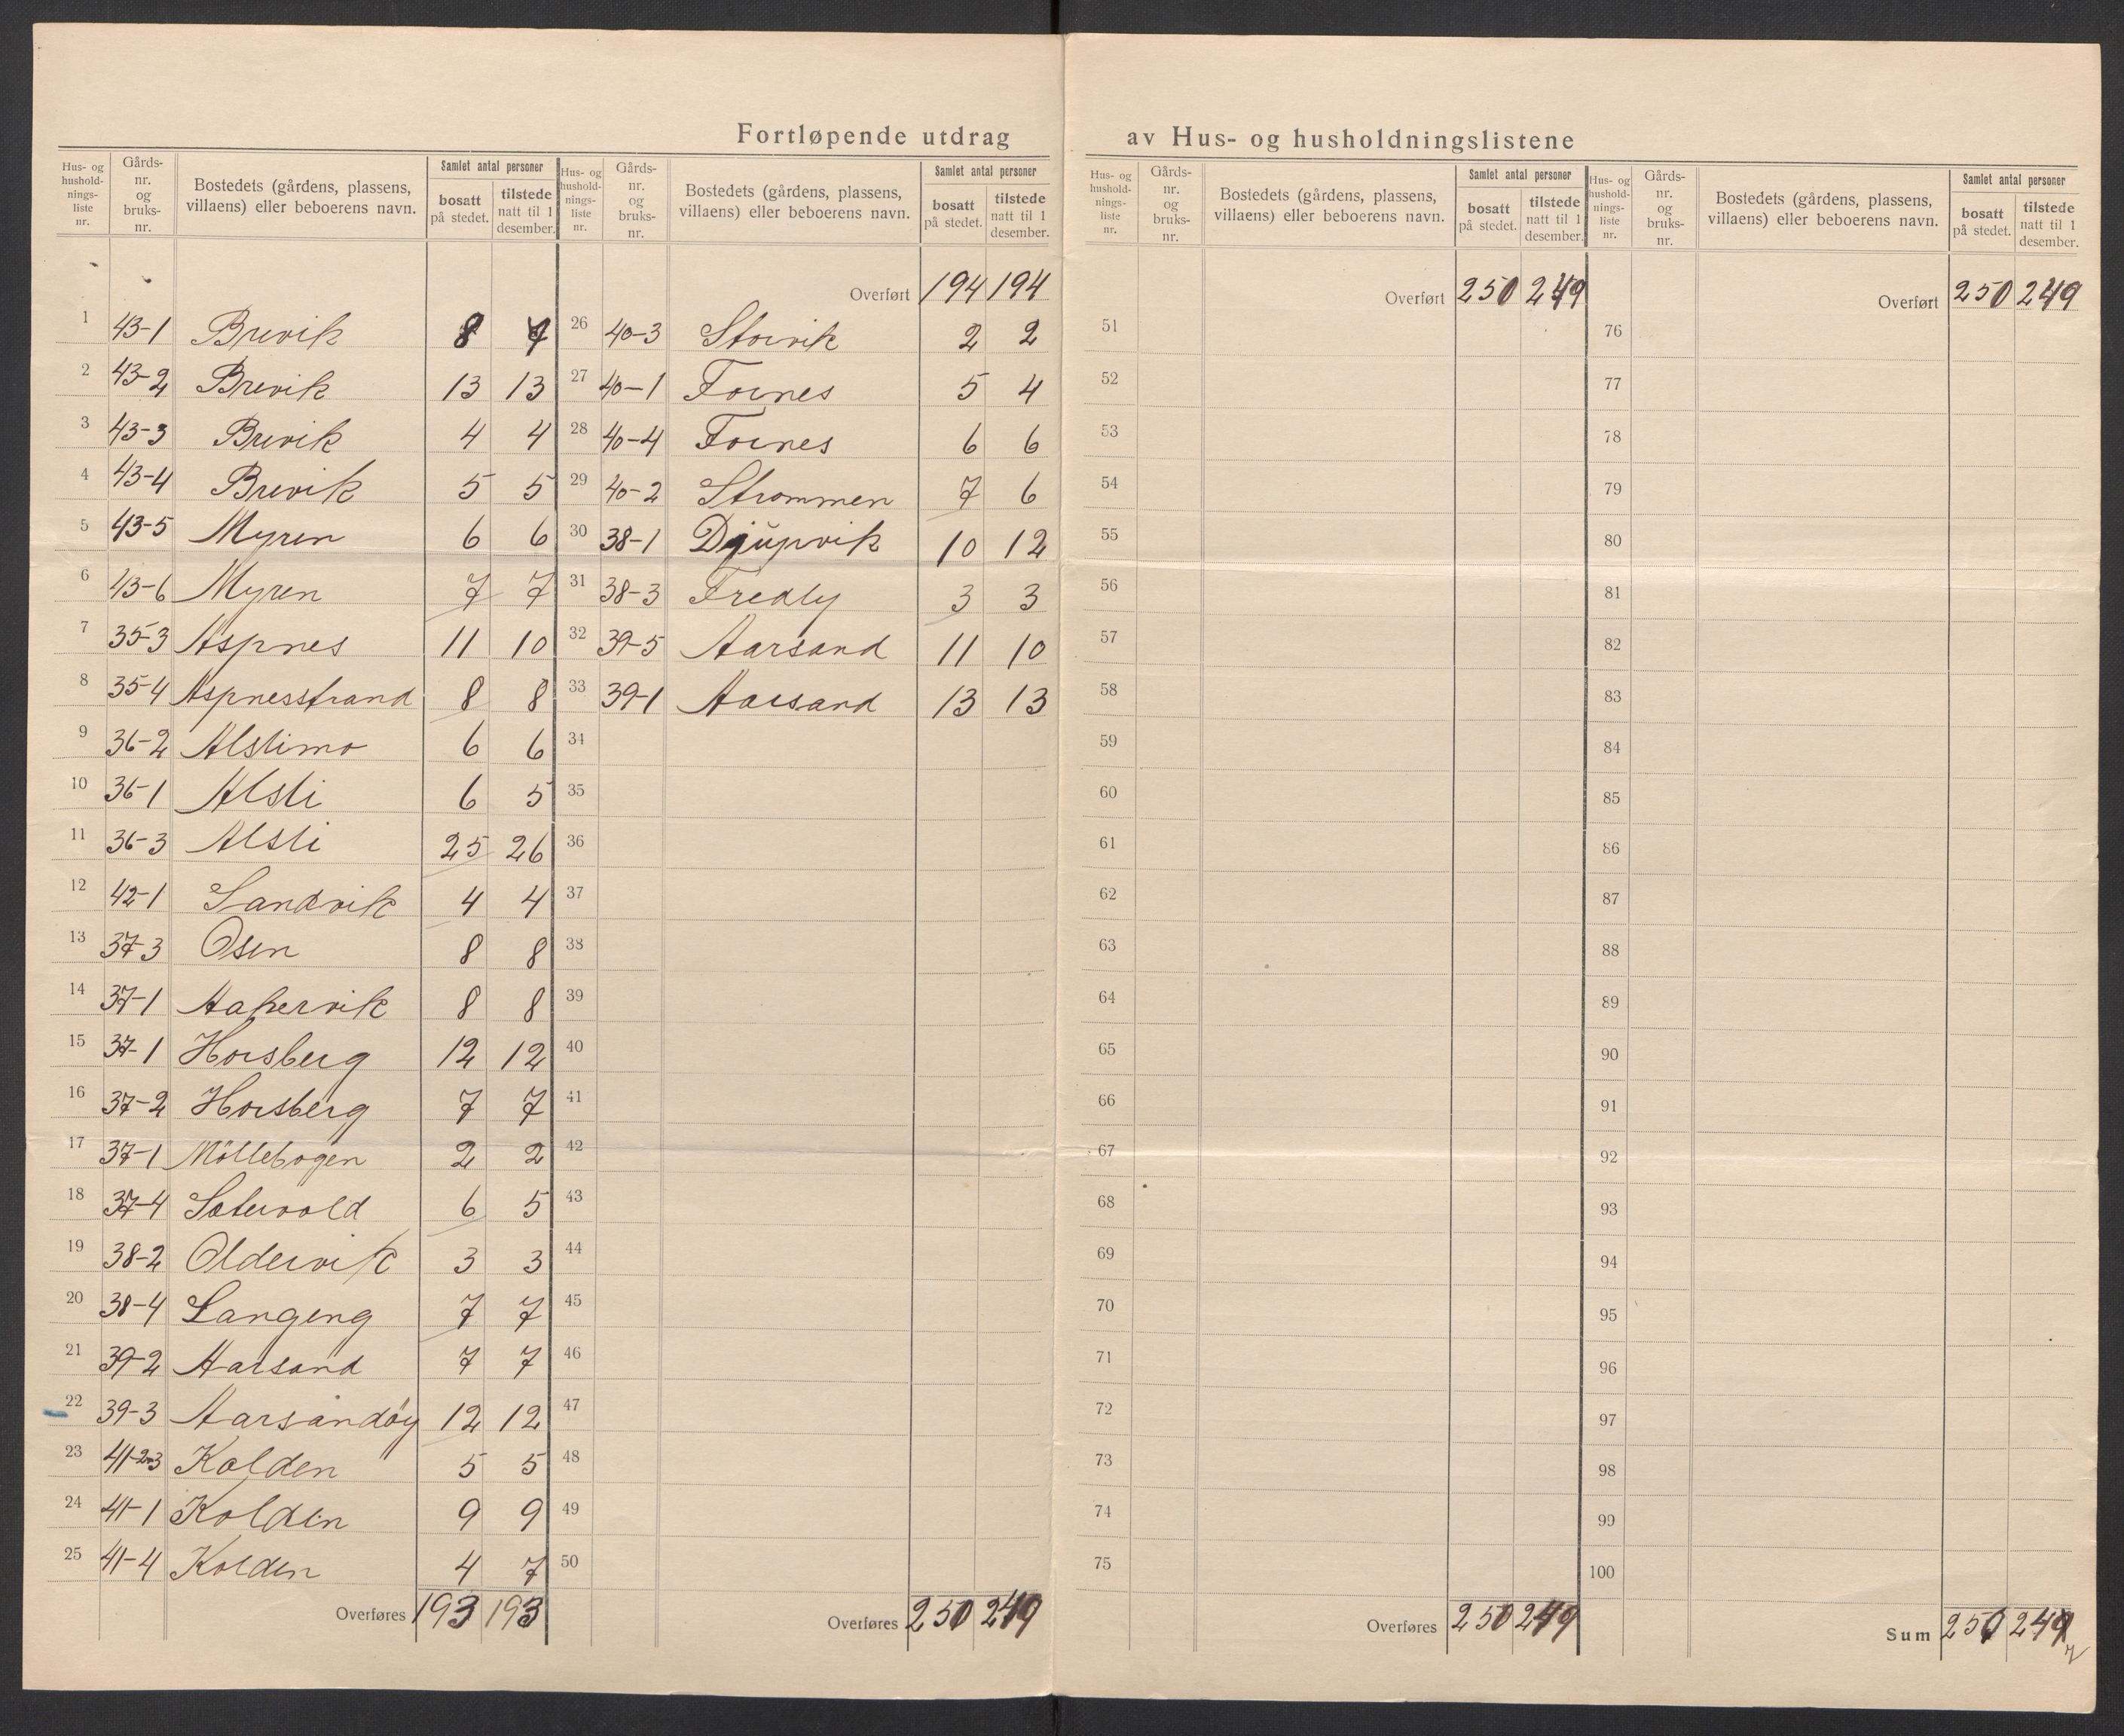 Fortløpende utdrag av Hus- og husholdningslistene
Hus- og hushold-nings-liste nr. | Gårds-nr. og bruks-nr. | Bostedets (gårdens, plassens, villaens) eller beboerens navn. | Samlet antal personer | bosatt på stedet. | tilstede natt til 1 desember.
1 43-1 Brevik 8 7
2 43-2 Brevik 13 13
3 43-3 Brevik 4 4
4 43-4 Brevik 5 5
5 43-5 Myren 6 6
6 43-6 Myren 7 7
7 35-3 Aspnes 11 10
8 35-4 Aspnesstrand 8 8
9 36-2 Alstimo 6 6
10 36-1 Alsti 6 5
11 36-3 Alsti 25 26
12 42-1 Sandvik 4 4
13 37-3 Osen 8 8
14 37-1 Aakervik 8 8
15 37-1 Horsberg 12 12
16 37-2 Horsberg 7 7
17 37-1 Möllebogen 2 2
18 37-4 Sætervold 6 5
19 38-2 Oldervik 3 3
20 38-4 Langeng 7 7
21 39-2 Aarsand 7 7
22 39-3 Aarsandöy 12 12
23 41-2 3 Kolden 5 5
24 41-1 Kolden 9 9
25 41-4 Kolden 4 7
Overføres 193 193
Hus- og hushold-nings-liste nr. | Gårds-nr. og bruks-nr. | Bostedets (gårdens, plassens, villaens) eller beboerens navn. | Samlet antal personer | bosatt på stedet. | tilstede natt til 1 desember.
Overført 194 194
26 40-3 Storvik 2 2
27 40-1 Fornes 5 4
28 40-4 Fornes 6 6
29 40-2 Strommen 7 6
30 38-1 Djŭpvik 10 12
31 38-3 Fredly 3 3
32 39-5 Aarsand 11 10
33 39-1 Aarsand 13 13
34
35
36
37
38
39
40
41
42
43
44
45
46
47
48
49
50
Overføres 250 249
Hus- og hushold-nings-liste nr. | Gårds-nr. og bruks-nr. | Bostedets (gårdens, plassens, villaens) eller beboerens navn. | Samlet antal personer | bosatt på stedet. | tilstede natt til 1 desember.
Overført 250 249
51
52
53
54
55
56
57
58
59
60
61
62
63
64
65
66
67
68
69
70
71
72
73
74
75
Overføres 250 249
Hus- og hushold-nings-liste nr. | Gårds-nr. og bruks-nr. | Bostedets (gårdens, plassens, villaens) eller beboerens navn. | Samlet antal personer | bosatt på stedet. | tilstede natt til 1 desember.
Overført 250 249
76
77
78
79
80
81
82
83
84
85
86
87
88
89
90
91
92
93
94
95
96
97
98
99
100
Sum 250 249